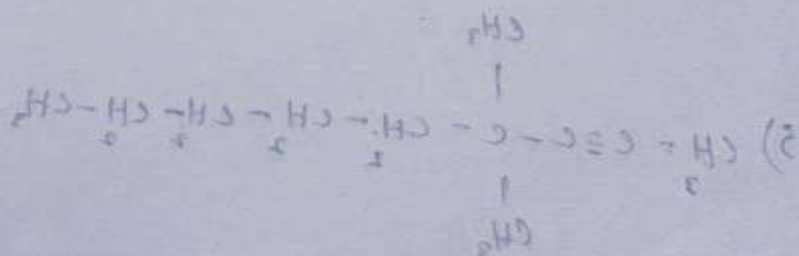 CH₃
|
5) CH₃ - C ≡ C - C - CH₂ - CH₂ - CH₂ - CH₂ - CH₃
|
CH₃